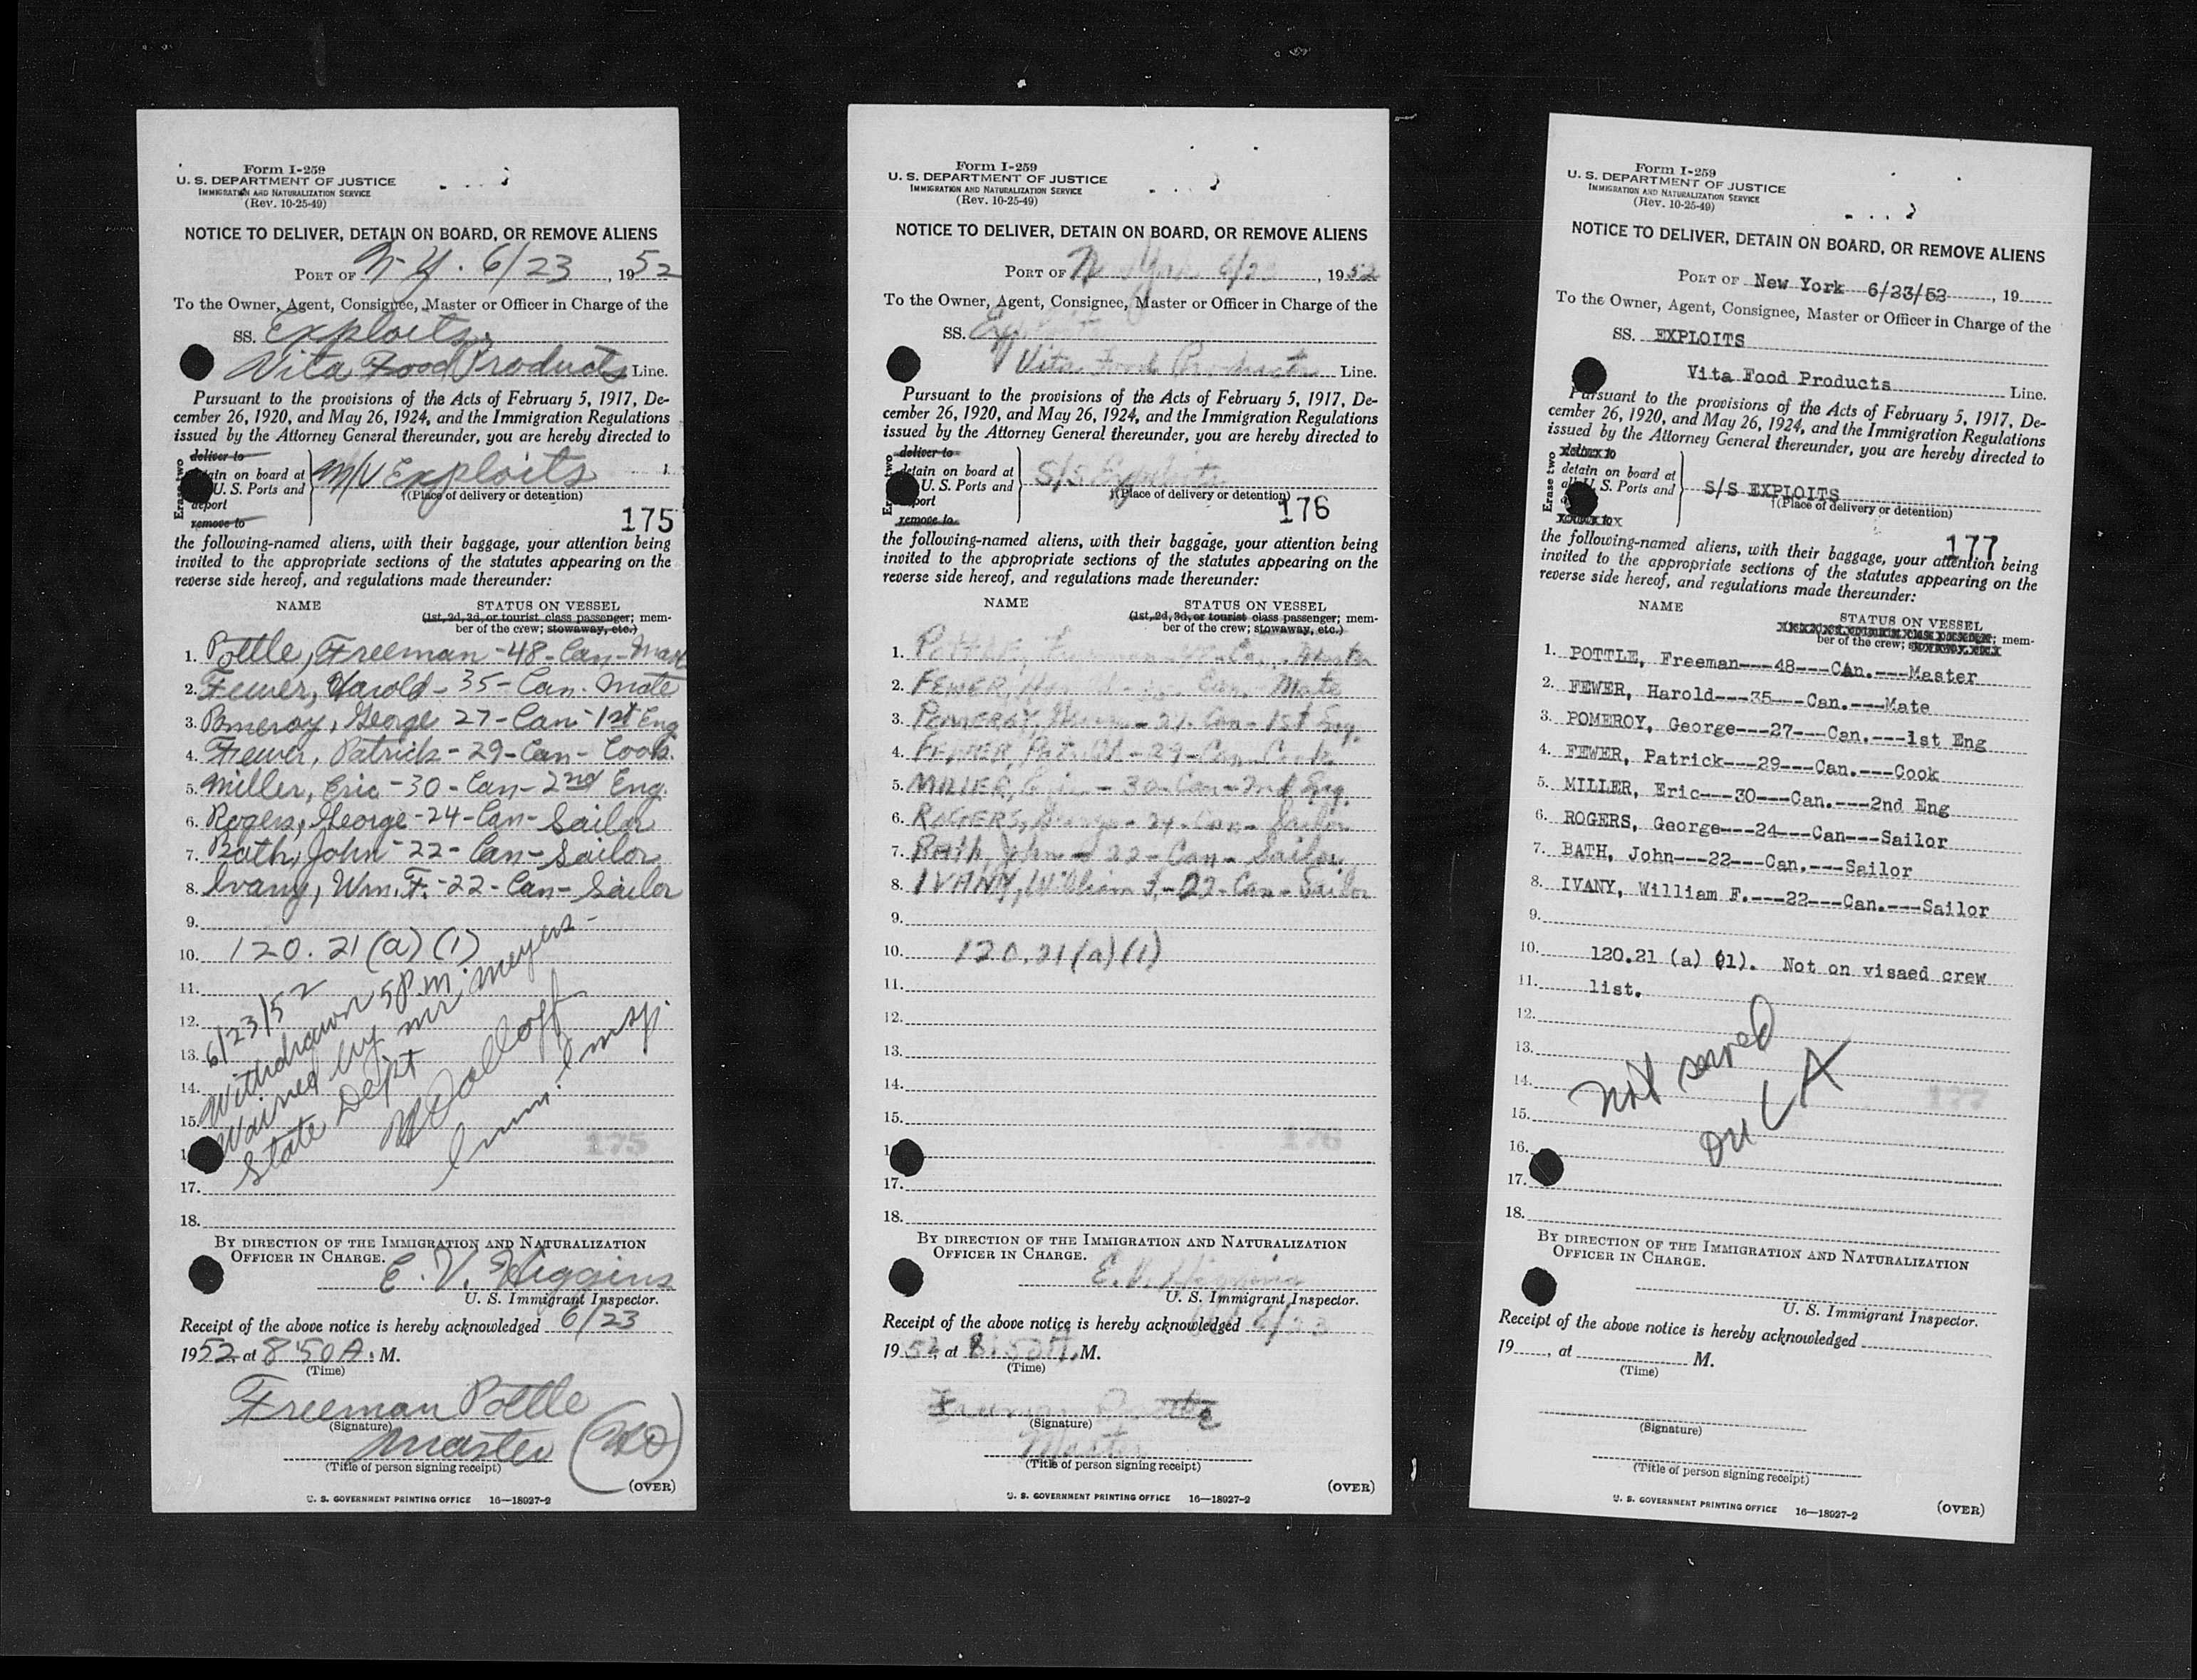 Form I-259
U. S. DEPARTMENT OF JUSTICE
IMMIGRATION AND NATURALIZATION SERVICE
(Rev. 10-25-49)
NOTICE TO DELIVER, DETAIN ON BOARD, OR REMOVE ALIENS
PORT OF N. Y. 6/23, 1952
To the Owner, Agent, Consignee, Master or Officer in Charge of the
SS. Exploits
Vita Food Products Line.
Pursuant to the provisions of the Acts of February 5, 1917, De-
cember 26, 1920, and May 26, 1924, and the Immigration Regulations
issued by the Attorney General thereunder, you are hereby directed to
Erase two
deliver to
detain on board at
U. S. Ports and
deport
remove to
M/V Exploits
(Place of delivery or detention)
175
the following-named aliens, with their baggage, your attention being
invited to the appropriate sections of the statutes appearing on the
reverse side hereof, and regulations made thereunder:
NAME STATUS ON VESSEL
(1st, 2d, 3d, or tourist class passenger; mem-
ber of the crew; stowaway, etc.)
1. Pottle, Freeman - 48 - Can - Mast
2. Fewer, Harold - 35 - Can. Mate
3. Pomeroy, George 27 - Can - 1st Eng
4. Fewer, Patrick - 29 - Can - Cook.
5. Miller, Eric - 30 - Can - 2nd Eng.
6. Rogers, George - 24 - Can - Sailor
7. Bath, John - 22 - Can - Sailor
8. Ivany, Wm. F. - 22 - Can - Sailor
9.
10. 120. 21 (a) (1)
11.
12.
13.
14.
15.
17.
18.
6/23/52
Withdrawn 5 P.m.
Waived by mr. Meyers -
State Dept
Imm. Insp.
175
BY DIRECTION OF THE IMMIGRATION AND NATURALIZATION
OFFICER IN CHARGE.
E. V. Higgins
U. S. Immigrant Inspector.
Receipt of the above notice is hereby acknowledged 6/23
1952 at 8:50 A. M.
(Time)
Freeman Pottle
(Signature)
Master
(Title of person signing receipt)
(OVER)
U. S. GOVERNMENT PRINTING OFFICE 16—18927-2
Form I-259
U. S. DEPARTMENT OF JUSTICE
IMMIGRATION AND NATURALIZATION SERVICE
(Rev. 10-25-49)
NOTICE TO DELIVER, DETAIN ON BOARD, OR REMOVE ALIENS
PORT OF New York 6/23, 1952
To the Owner, Agent, Consignee, Master or Officer in Charge of the
SS. Exploits
Vita Food Products Line.
Pursuant to the provisions of the Acts of February 5, 1917, De-
cember 26, 1920, and May 26, 1924, and the Immigration Regulations
issued by the Attorney General thereunder, you are hereby directed to
deliver to
detain on board at
U. S. Ports and
port
remove to
S/S Exploits
(Place of delivery or detention)
176
the following-named aliens, with their baggage, your attention being
invited to the appropriate sections of the statutes appearing on the
reverse side hereof, and regulations made thereunder:
NAME STATUS ON VESSEL
(1st, 2d, 3d, or tourist class passenger; mem-
ber of the crew; stowaway, etc.)
1. POTTLE, Freeman - 48 - Can - Master
2. FEWER, Harold - 35 - Can. Mate
3. POMEROY, George - 27 - Can - 1st Eng.
4. FEWER, Patrick - 29 - Can - Cook
5. MILLER, Eric - 30 - Can - 2nd Eng.
6. ROGERS, George - 24 - Can - Sailor
7. Bath, John - 22 - Can - Sailor
8. IVANY, William F. - 22 - Can - Sailor
9.
10. 120.21 (a) (1)
11.
12.
13.
14.
15.
17.
18.
176
BY DIRECTION OF THE IMMIGRATION AND NATURALIZATION
OFFICER IN CHARGE.
E. V. Higgins
U. S. Immigrant Inspector.
Receipt of the above notice is hereby acknowledged 6/23
1952, at 8:50 A. M.
(Time)
Freeman Pottle
(Signature)
Master
(Title of person signing receipt)
(OVER)
U. S. GOVERNMENT PRINTING OFFICE 16—18927-2
Form I-259
U. S. DEPARTMENT OF JUSTICE
IMMIGRATION AND NATURALIZATION SERVICE
(Rev. 10-25-49)
NOTICE TO DELIVER, DETAIN ON BOARD, OR REMOVE ALIENS
PORT OF New York 6/23/52, 19
To the Owner, Agent, Consignee, Master or Officer in Charge of the
SS. EXPLOITS
Vita Food Products Line.
Pursuant to the provisions of the Acts of February 5, 1917, De-
cember 26, 1920, and May 26, 1924, and the Immigration Regulations
issued by the Attorney General thereunder, you are hereby directed to
Erase two
detain on board at
U. S. Ports and
S/S EXPLOITS
(Place of delivery or detention)
177
the following-named aliens, with their baggage, your attention being
invited to the appropriate sections of the statutes appearing on the
reverse side hereof, and regulations made thereunder:
NAME STATUS ON VESSEL
; mem-
ber of the crew;
1. POTTLE, Freeman---48---CAn.---Master
2. FEWER, Harold---35---Can.---Mate
3. POMEROY, George---27---Can.---1st Eng
4. FEWER, Patrick---29---Can.---Cook
5. MILLER, Eric---30---Can.---2nd Eng
6. ROGERS, George---24---Can---Sailor
7. BATH, John---22---Can.---Sailor
8. IVANY, William F.---22---Can.---Sailor
9.
10. 120.21 (a) (1). Not on visaed crew
11. list.
12.
13.
14.
15.
16.
17.
18.
Not served
177
BY DIRECTION OF THE IMMIGRATION AND NATURALIZATION
OFFICER IN CHARGE.
U. S. Immigrant Inspector.
Receipt of the above notice is hereby acknowledged
19, at M.
(Time)
(Signature)
(Title of person signing receipt)
(OVER)
U. S. GOVERNMENT PRINTING OFFICE 16—18927-2